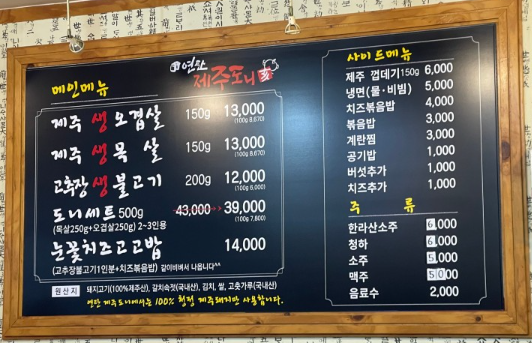 연탄
제주도니
메인메뉴
제주 생 오겹살 150g 13,000
(100g 8,670)
제주 생 목 살 150g 13,000
(100g 8,670)
고추장 생 불고기 200g 12,000
(100g 6,000)
도니세트 500g 43,000 39,000
(목살250g+오겹살250g) 2~3인용 (100g 7,800)
눈꽃치즈고고밥 14,000
(고추장불고기1인분+치즈볶음밥) 같이비벼서 나옵니다^^
원산지 돼지고기(100%제주산), 갈치속젓(국내산), 김치, 쌀, 고춧가루(국내산)
연탄 제주도니에서는 100% 청정 제주돼지만 사용합니다.
사이드메뉴
제주 껍데기150g 6,000
냉면(물·비빔) 5,000
치즈볶음밥 4,000
볶음밥 3,000
계란찜 3,000
공기밥 1,000
버섯추가 1,000
치즈추가 1,000
주 류
한라산소주 6,000
청하 6,000
소주 5,000
맥주 5000
음료수 2,000